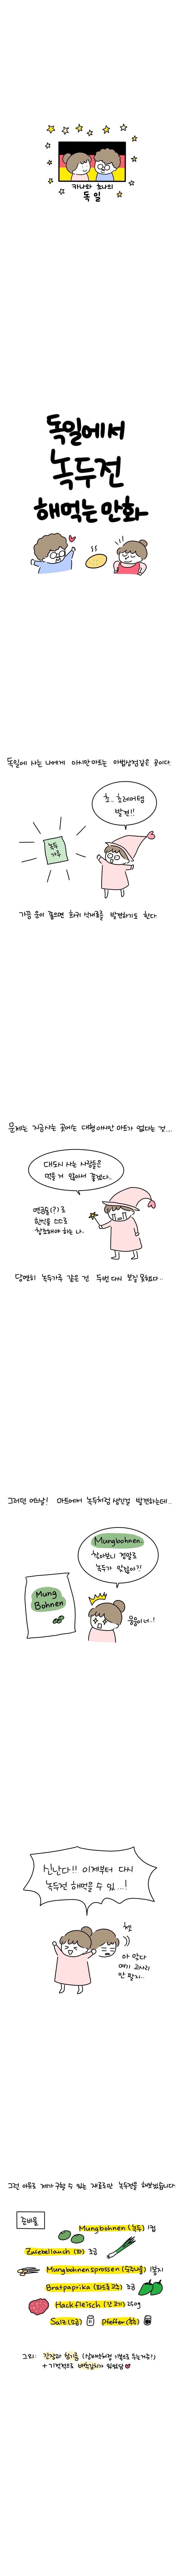 카나와 쵸나의
독일
독일에서
녹두전
해먹는 만화
독일에 사는 나에게 아시안마트는 마법상점같은 곳이다.
초.. 초레어템
발견!!
녹두
가루
가끔 운이 좋으면 희귀 식재료를 발견하기도 한다.
문제는 지금사는 곳에는 대형아시안 마트가 없다는 것...
대도시 사는 사람들은
먹을 거 많아서 좋겠다..
연금술(?)로
한식을 스스로
창조해야 하는 나..
당연히 녹두가루 같은 건 두번 다시 보질 못했다..
그러던 어느날! 마트에서 녹두처럼 생긴걸 발견하는데..
Mungbohnen.
찾아보니 정말로
녹두가 맞잖아?!
Mung
Bohnen
신난다!! 이제부터 다시
녹두전 해먹을 수 있...!
헛
아 맞다
여기 고사리
안 팔지..
그런 이유로 제가 구할 수 있는 재료로만 녹두전을 해보겠습니다.
준비물
Mungbohnen (녹두) 1컵
Zwiebellauch (파) 조금
Mungbohnensprossen (숙주나물) 1봉지
Bratpaprika (파드론고추) 조금
Hackfleisch (간고기) 250g
Salz (소금)
Pfeffer (후추)